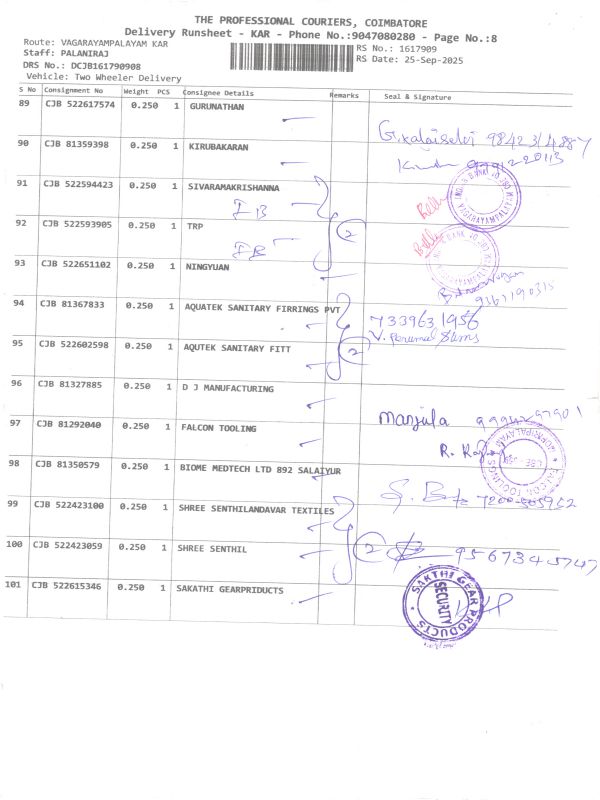 THE PROFESSIONAL COURIERS, COIMBATORE
Delivery Runsheet - KAR - Phone No.:9047080280 - Page No.:8
Route: VAGARAYAMPALAYAM KAR
Staff: PALANIRAJ
DRS No.: DCJB161790908
Vehicle: Two Wheeler Delivery
RS No.: 1617909
RS Date: 25-Sep-2025
S No Consignment No Weight PCS Consignee Details Remarks Seal & Signature
89 CJB 522617574 0.250 1 GURUNATHAN
90 CJB 81359398 0.250 1 KIRUBAKARAN
91 CJB 522594423 0.250 1 SIVARAMAKRISHANNA
IB
92 CJB 522593905 0.250 1 TRP
2
IB
93 CJB 522651102 0.250 1 NINGYUAN
94 CJB 81367833 0.250 1 AQUATEK SANITARY FIRRINGS PVT
7339631956
V. Perumal
95 CJB 522602598 0.250 1 AQUTEK SANITARY FITT
2
96 CJB 81327885 0.250 1 D J MANUFACTURING
Manjula
97 CJB 81292040 0.250 1 FALCON TOOLING
98 CJB 81350579 0.250 1 BIOME MEDTECH LTD 892 SALAIYUR
99 CJB 522423100 0.250 1 SHREE SENTHILANDAVAR TEXTILES
100 CJB 522423059 0.250 1 SHREE SENTHIL
2
101 CJB 522615346 0.250 1 SAKATHI GEARPRIDUCTS
SAKTHI GEAR PRODUCTS
SECURITY